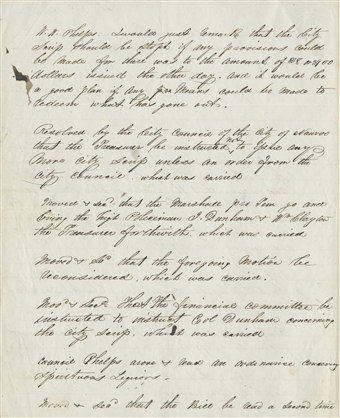 W. W. Phelps. I would just remark that the City
Scrip should be stopt if any provisions could
be made for there was to the amount of
dollars issued the other day, and it would be
a good plan if any means could be made to
redeem what has gone out.
Resolved by the City Council of the City of Nauvoo
that the Treasurer be instructed not to pass any
more City Scrip unless an order from the
City Council. which was carried
Moved & Secd that the Marshall pro tem go and
bring the High Policeman J. Dunham & Wm Clayton
the Treasurer forthwith. which was carried
Moved & Sec that the foregoing Motion be
reconsidered, which was carried.
Movd & Secd that the financial committee be
instructed to instruct Col Dunham concerning
the City Scrip. which was carried
Council Phelps arose & read an ordinance concerning
Spirituous Liquors -
Moved & Secd that the Bill be read a second time